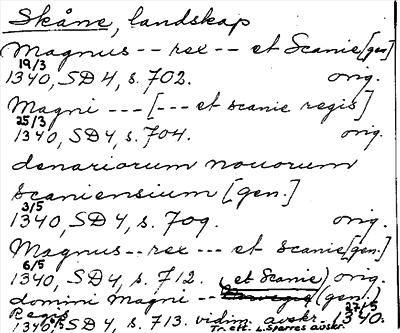 Skåne, landskap
Magnus -- rex -- et Scanie [gen]
19/3
1340, SD 4, s. 702. orig.
Magni --- [--- et scanie regis]
25/3
1340, SD 4, s. 704. orig.
denariorum nouorum
scaniensium [gen.]
3/5
1340, SD 4, s. 709. orig.
Magnus -- rex --- et scanie [gen.]
6/5
1340, SD 4, s. 712. (et Scanie) orig.
domini Magni -- (gen.) 27/5
Regis
1340, SD 4, s. 713. vidim. avskr. 1340.
Tr. eft. L. Sparres avskr.